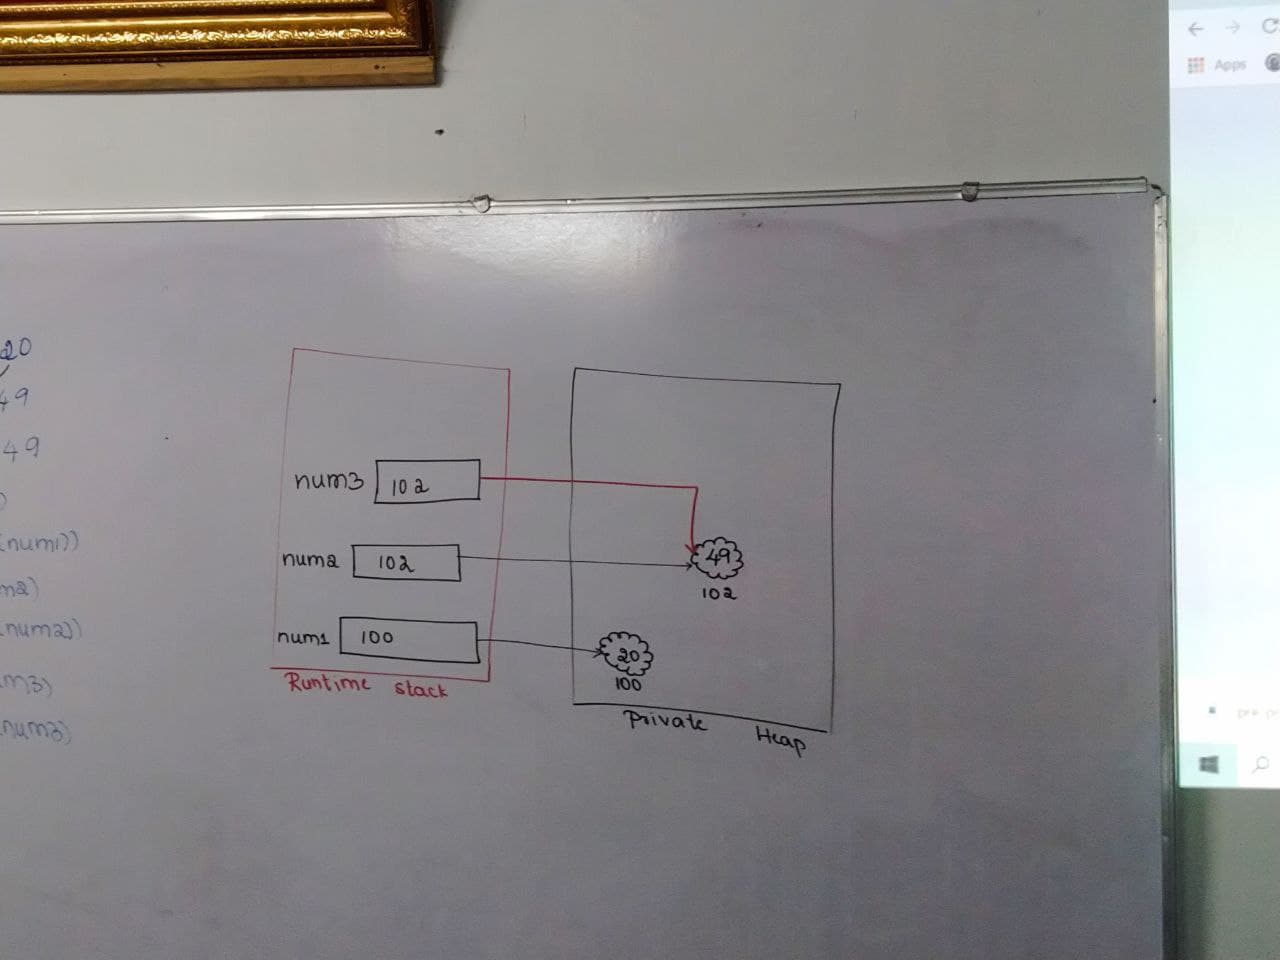 20
49
49
)
(num1))
ma)
(num2))
m3)
num3)
num3 102
num2 102
num1 100
Runtime stack
49
102
20
100
Private Heap
Apps